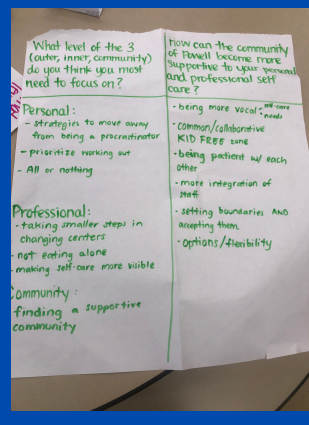 What level of the 3
(outer, inner, community)
do you think you most
need to focus on?
Personal:
- strategies to move away
from being a procrastinator
- prioritize working out
- All or nothing
Professional:
- taking smaller steps in
changing centers
- not eating alone
- making self-care more visible
Community:
finding a supportive
community
How can the community
of Powell become more
supportive to your personal
and professional self
care?
- being more vocal: self-care
needs
- common/collaborative
KID FREE zone
- being patient w/ each
other
- more integration of
staff
- setting boundaries AND
accepting them.
- options/flexibility